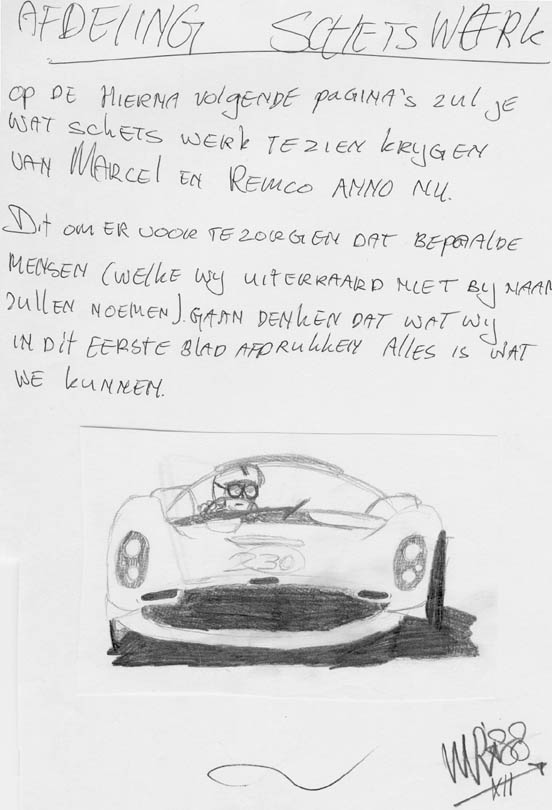 AFDELING SCHETSWERK
OP DE HIERNA VOLGENDE PAGINA'S ZUL JE
WAT SCHETS WERK TE ZIEN KRYGEN
VAN MARCEL EN REMCO ANNO NU.
Dit OM ER VOOR TE ZORGEN DAT BEPAALDE
MENSEN (WELKE WY UITERRAARD NIET BY NAAM
ZULLEN NOEMEN). GAAN DENKEN DAT WAT WY
IN Dit EERSTE BLAD AFDRUKKEN ALLES IS WAT
WE KUNNEN.
230
'88
XII